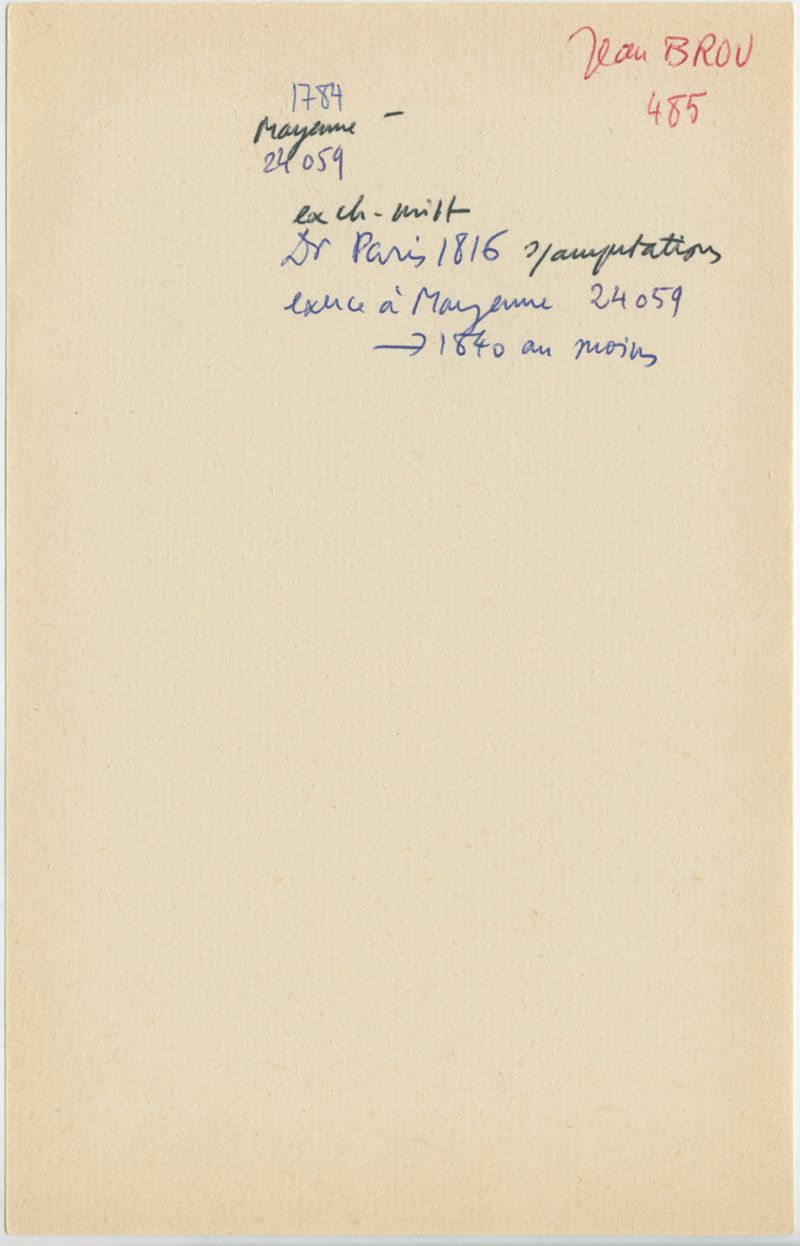 Jean BROU
485
1784
Mayenne -
24059
ex ch-milit
Dr Paris 1816 s/amputations
exerce à Mayenne 24059
→ 1840 au moins